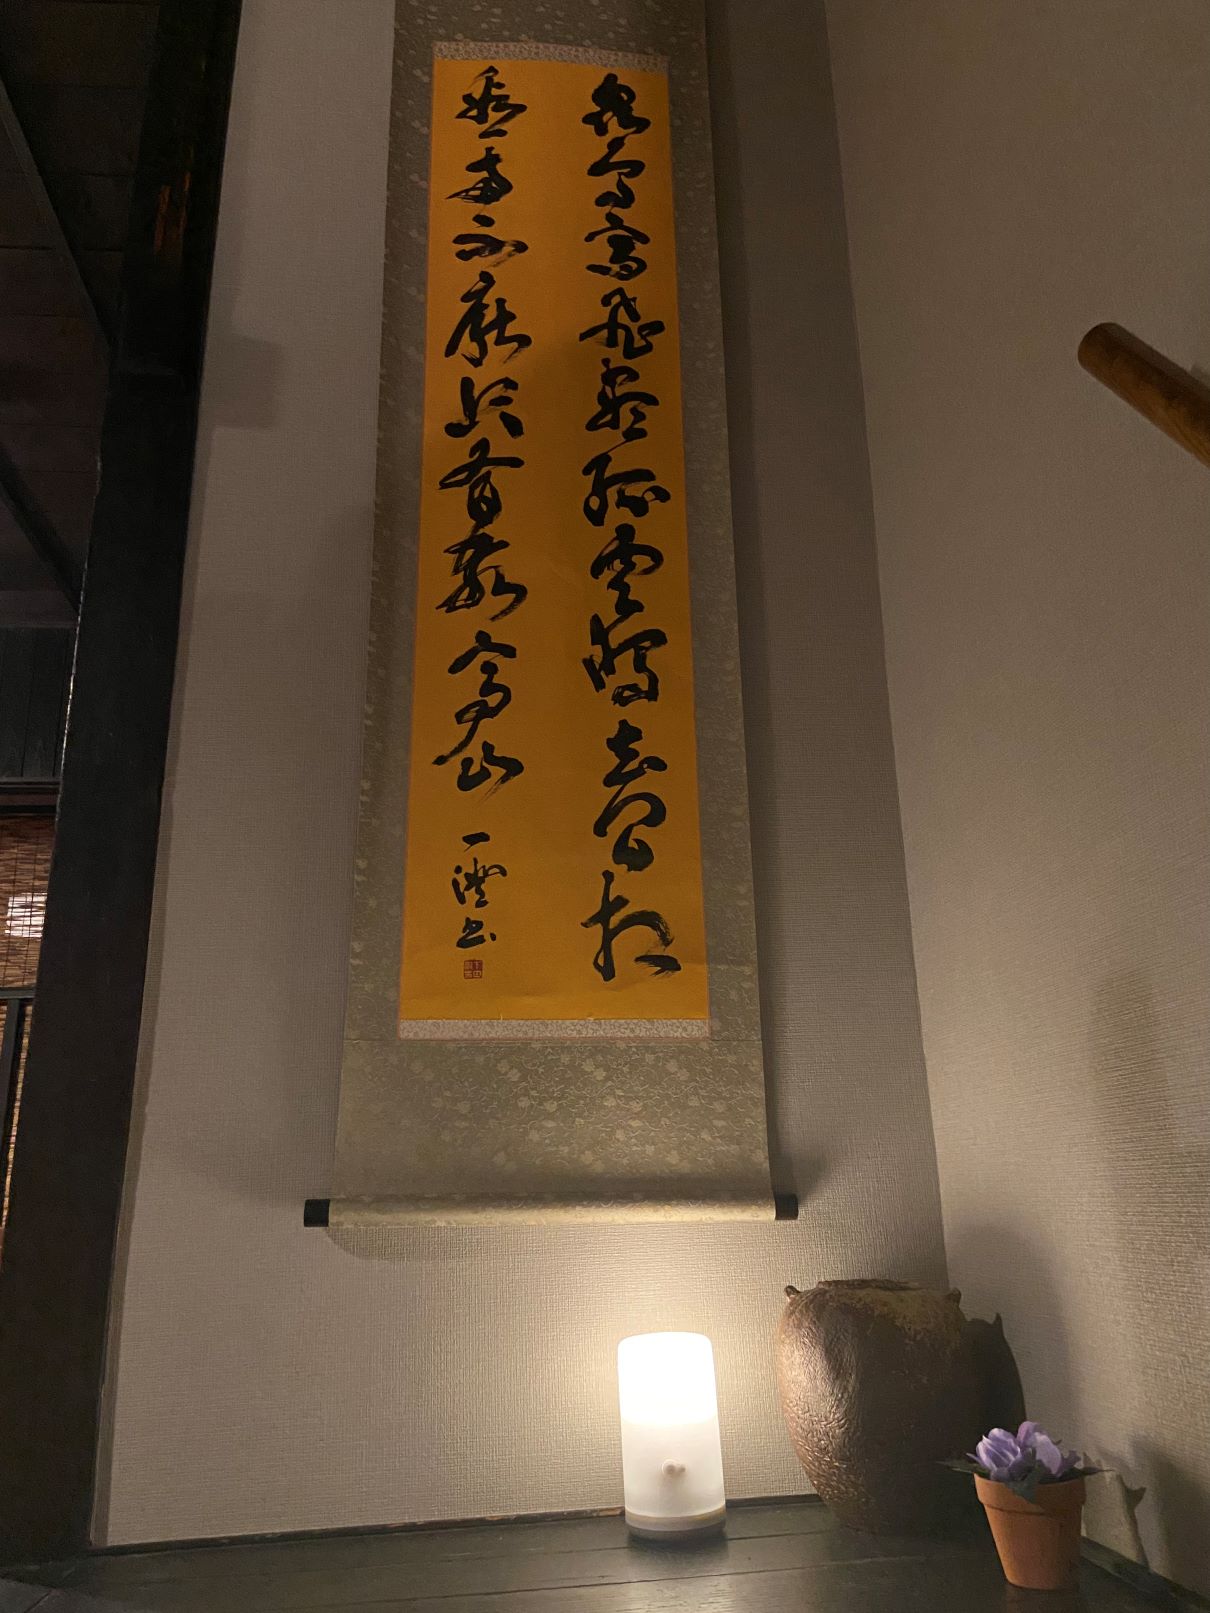 衆鳥高飛盡孤雲獨去閑相
看両不厭只有敬亭山 一澄書